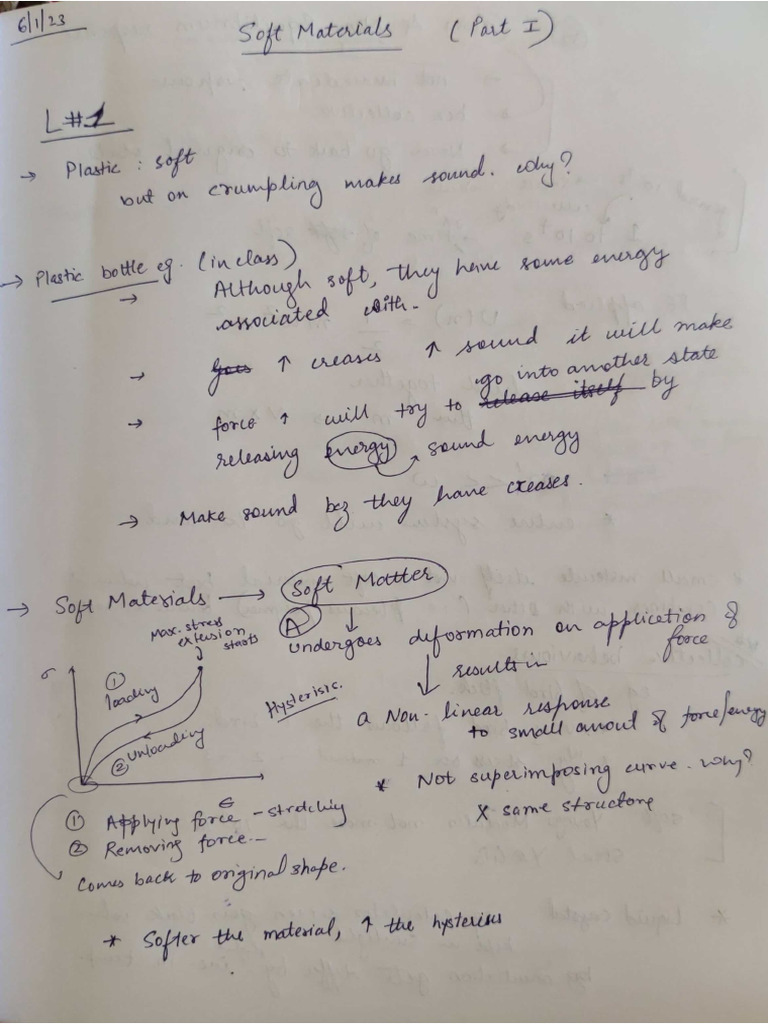 6/1/23
Soft Materials (Part I)
L#1
→ Plastic : soft
but on crumpling makes sound. Why?
→ Plastic bottle eg. (in class)
→ Although soft, they have some energy
associated with.
→ ↑ creases ↑ sound it will make
go into another state
→ force ↑ will try to release itself by
releasing energy → sound energy
→ Make sound bcz they have creases.
→ Soft Materials → Soft Matter
A
Max. stress
extension
starts
undergoes deformation on application of
force
results in
σ
① loading
② unloading
Hysterisis.
a Non-linear response
to small amout of force/energy
* Not superimposing curve. Why?
X same structure
ε
① Applying force - stretching
② Removing force.-
Comes back to original shape.
* Softer the material, ↑ the hysterisis